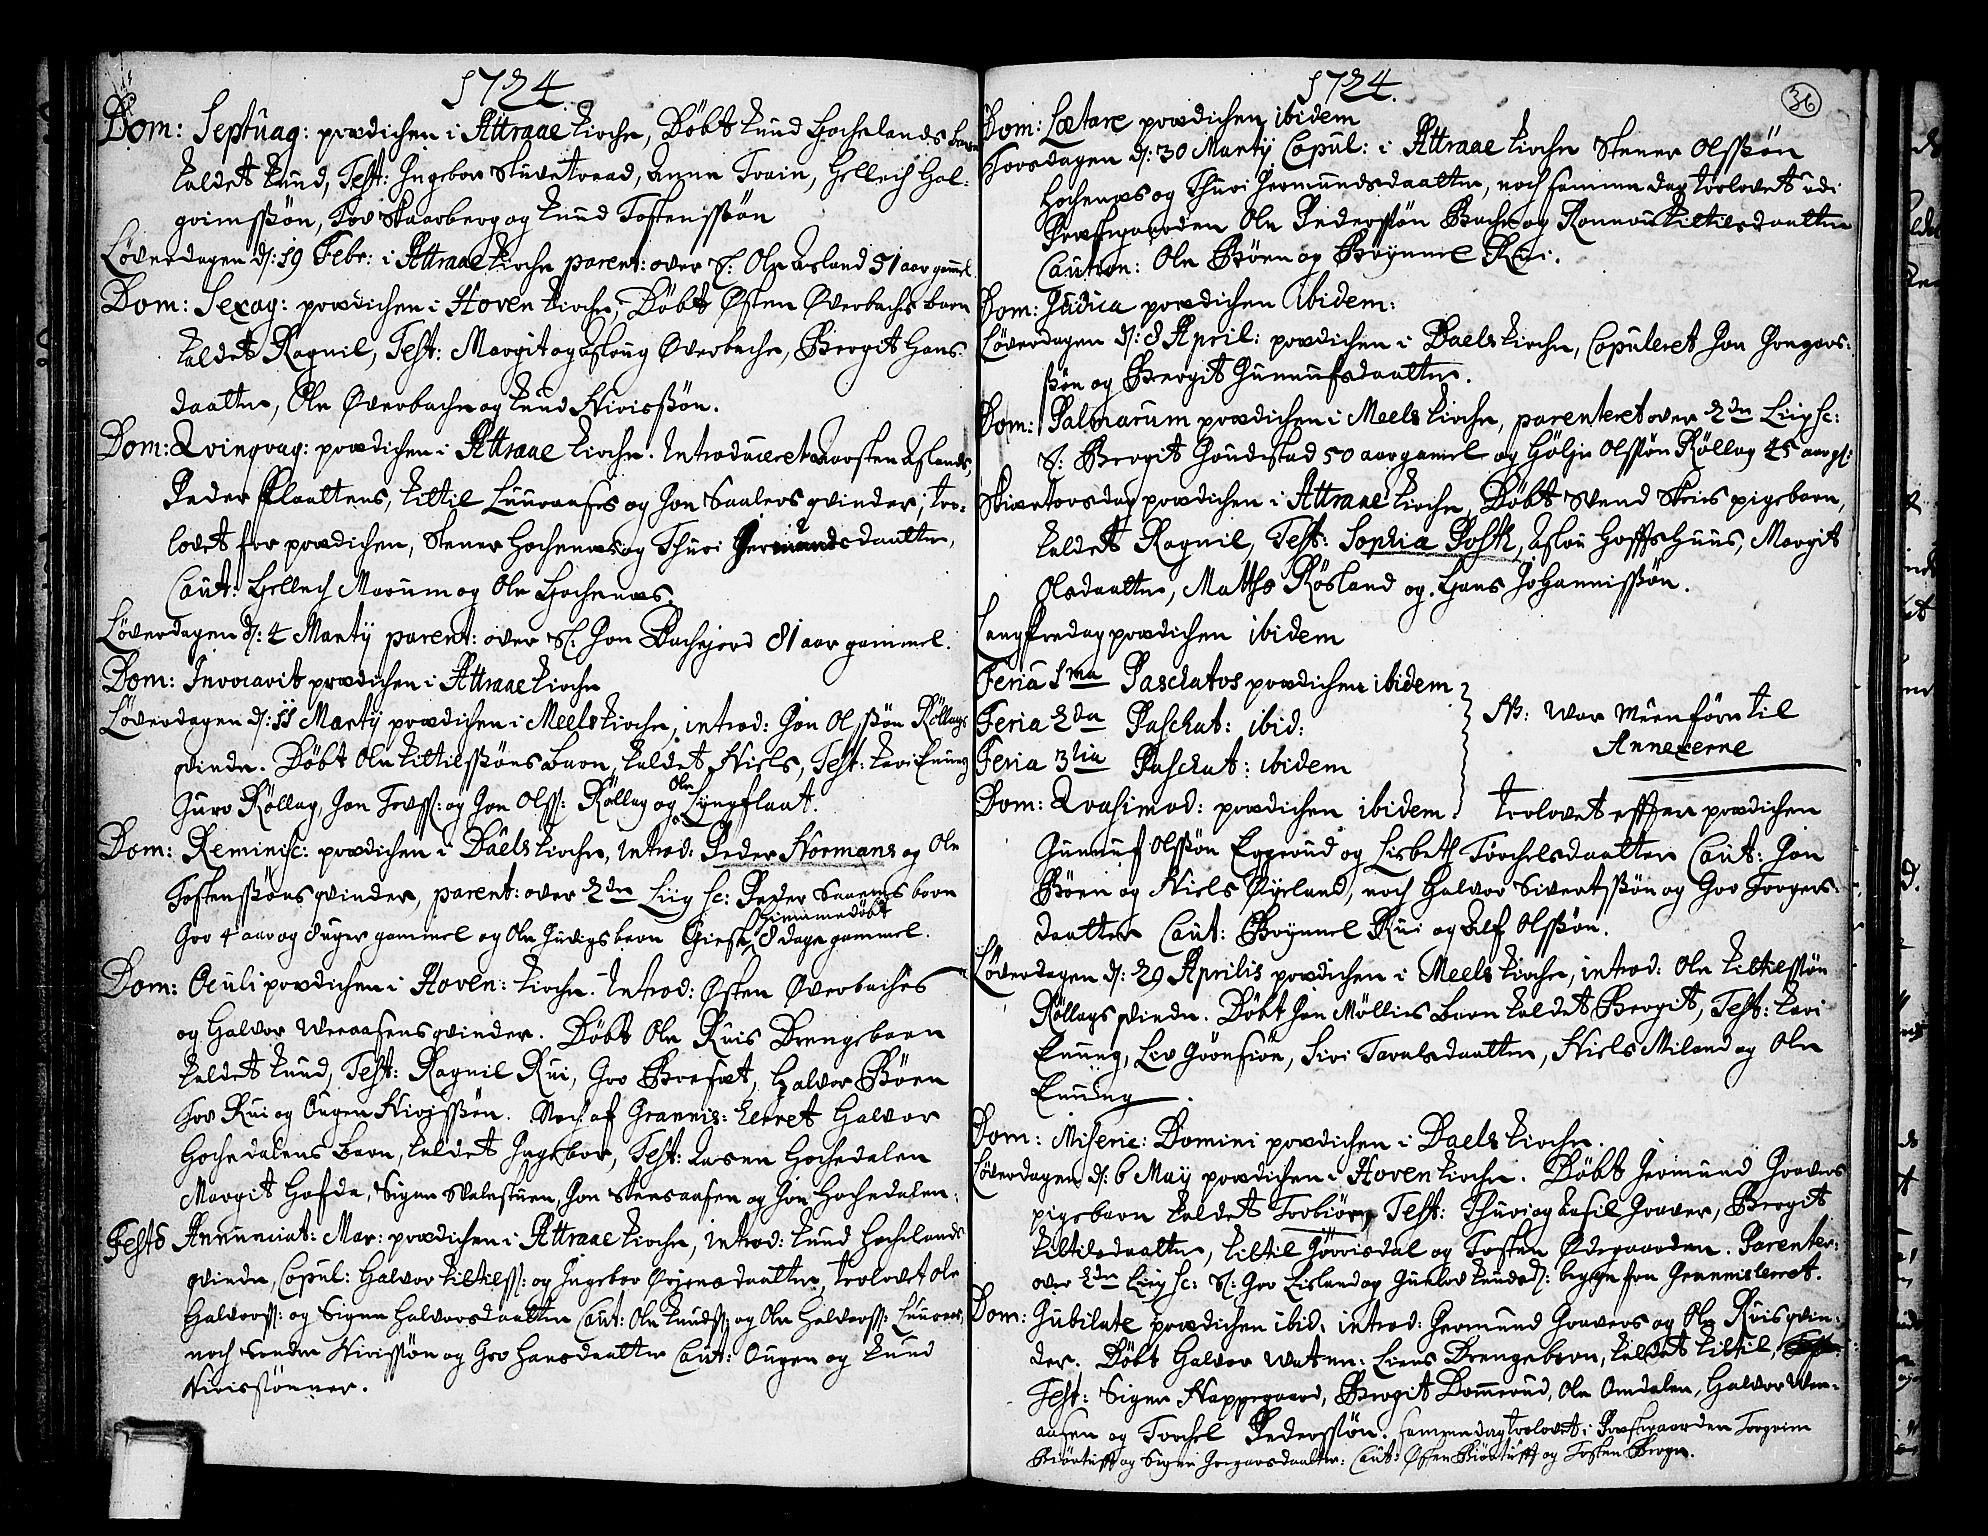 1724.
Dom: Septuag: prædichen i Attraae kirche, Döbt Knud Hochelands barn
kaldet Knud, Test: Ingebor Stuvetraad, Anne Train, Hellech Hal-
grimssøn, Tov Skaarberg og Knud Tostenssøn
Løverdagen d: 19 Febr: i Attraae kirche parent: over S: Ole Asland 51 aar gamel.
Dom: Sexag: prædichen i Hoven kirche, Döbt Østen Øverbøchs barn
kaldet Ragnil, Test: Margit og Asloug Øverbøche, Bergit Hans-
daatter, Ole Øverbøche og Knud Nirissøn.
Dom: Qvinqvag: prædichen i Attraae kirche. Introduceret Torsten Aslands,
Peder Flaattens, Kittil Luuraases og Jon Saaleers qvinder, tro-
lovet for prædichen, Stener Hochenæs og Thuri Germundsdaatter,
Caut: Hellech Marum og Ole Hochenæs.
Løverdagen d: 4 Martij parent: over Sl: Jon Bachejord 81 aar gammel.
Dom: Invocavit prædichen i Attraae kirche
Løverdagen d: 11 Martij prædichen i Meels kirche, introd: Jon Olssøn Röllags
qvinde. Döbt Ole Kittilssøns barn, kaldet Niels, Test: Kari Enung
Guro Röllag, Jon Tovss: og Jon Olss: Röllag og Ole Lyngflaat.
Dom: Reminisc: prædichen i Daels kirche, Introd: Peder Normans og Ole
Tostenssøns qvinder, parent: over 2de Liig sc: Peder Saaems barn
Gro 4 aar og 8 uger gammel og Ole Gurigs barn hiemmedöbt 8 dage gammel.
Dom: Oculi prædichen i Hoven: kirche. Introd: Østen Øverbøches
og Halvor Veraasens qvinder. Döbt Ole Ruis Drengebarn
kaldet Knud, Test: Ragnil Rui, Gro Bresæt, Halvor Bøen
Tov Rui og Ougen Nirissøn. Noch af Grannis: Kerret Halvor
Hochedalens barn, kaldet Ingebor, Test: Aasne Hochedalen
Margit Hofde, Signe Valestuen, Jon Steensaasen og Jon Hochedalen.
Festo Annunciat: Mar: prædichen i Attraae kirche, Introd: Knud Hochelands
qvinde, Copul: Halvor Kittilss: og Ingebor Ørjensdaatter, trolovet Ole
Halvorss: og Signe Halvorsdaatter Caut: Ole Knudss: og Ole Halvorss: Luuraas,
noch Sondre Nirissøn og Gro Hansdaatter Caut: Ougen og Knud
Nirissønner.
1724.
36
Dom: Lætare prædichen ibidem
Torsdagen d: 30 Martij Copul: i Attraae kirche Stener Olssøn
Hochenæs og Thuri Germundsdaatter, noch samme dag trolovet udi
Præstgaarden Ole Pederssøn Bache og Ronnou Kittilsdaatter
Caution: Ole Bøen og Brynnel Rui.
Dom: Judica prædichen ibidem:
Løverdagen d: 8 April: prædichen i Daels kirche, Copuleret Jon Gregors-
søn og Bergit Gunnufsdaatter.
Dom: Palmarum prædichen i Meels kirche, parenteret over 2de Liig sc:
S: Bergit Goudestad 50 aar gamel og Hölje Olssøn Röllag 45 aar gl:
Skiærtorsdag prædichen i Attraae kirche, Döbt Svend Skeies pigebarn,
kaldet Ragnil, Test: Sophia Posth, Aslou Hoffshuus, Margit
Olsdaatter, Matths Rösland og Hans Johannissøn.
Langfredag prædichen ibidem
Feria 1ma Paschatos prædichen ibidem
Feria 2da Paschat: ibid:
Feria 3tia Paschat: ibidem
NB: War Meenföre til
Annexerne
Dom: Qvasimod: prædichen ibidem. Trolovet efter prædichen
Gunnuf Olssøn Eggerud og Lisbeth Torchelsdaatter Caut: Jon
Bøen og Niels Øyeland, noch Halvor Sivertssøn og Gro Torgers-
daatter Caut: Brynnel Rui og Alf Olssøn.
Løverdagen d: 29 Aprilis prædichen i Meels kirche, introd: Ole Kittilssøn
Röllags qvinde. Döbt Jon Möllers barn kaldet Bergit, Test: Kari
Enung, Liv Grönsiöe, Siri Tovalsdaatter, Niels Miland og Ole
Enung.
Dom: Miseric: Domini prædichen i Daels kirche.
Løverdagen d: 6 Maij prædichen i Hoven kirche. Döbt Germund Gravers
pigebarn kaldet Torbiör, Test: Thuri og Aasil Graver, Bergit
Kittilsdaatter, Kittil Jörrisdal og Tosten Ødegaarden. Parenter:
over 2de Liig sc: S: Gro Lisland og Gunlov Knudsd: begge fra Grannisherret.
Dom: Jubilate prædichen ibid: introd: Germund Gravers og Ole Ruis qvin-
der. Döbt Halvor Waten: Liens Drengebarn, kaldet Kittil,
Test: Signe Nappegaard, Bergit Dommerud, Ole Omdalen, Halvor Wer-
aasen og Torchel Pederssøn. Samme dag trolovet i Præstgaarden Torgrim
Biörtuft og Signe Gregorsdaatter: Caut: Østen Biörtuft og Tosten Berge.